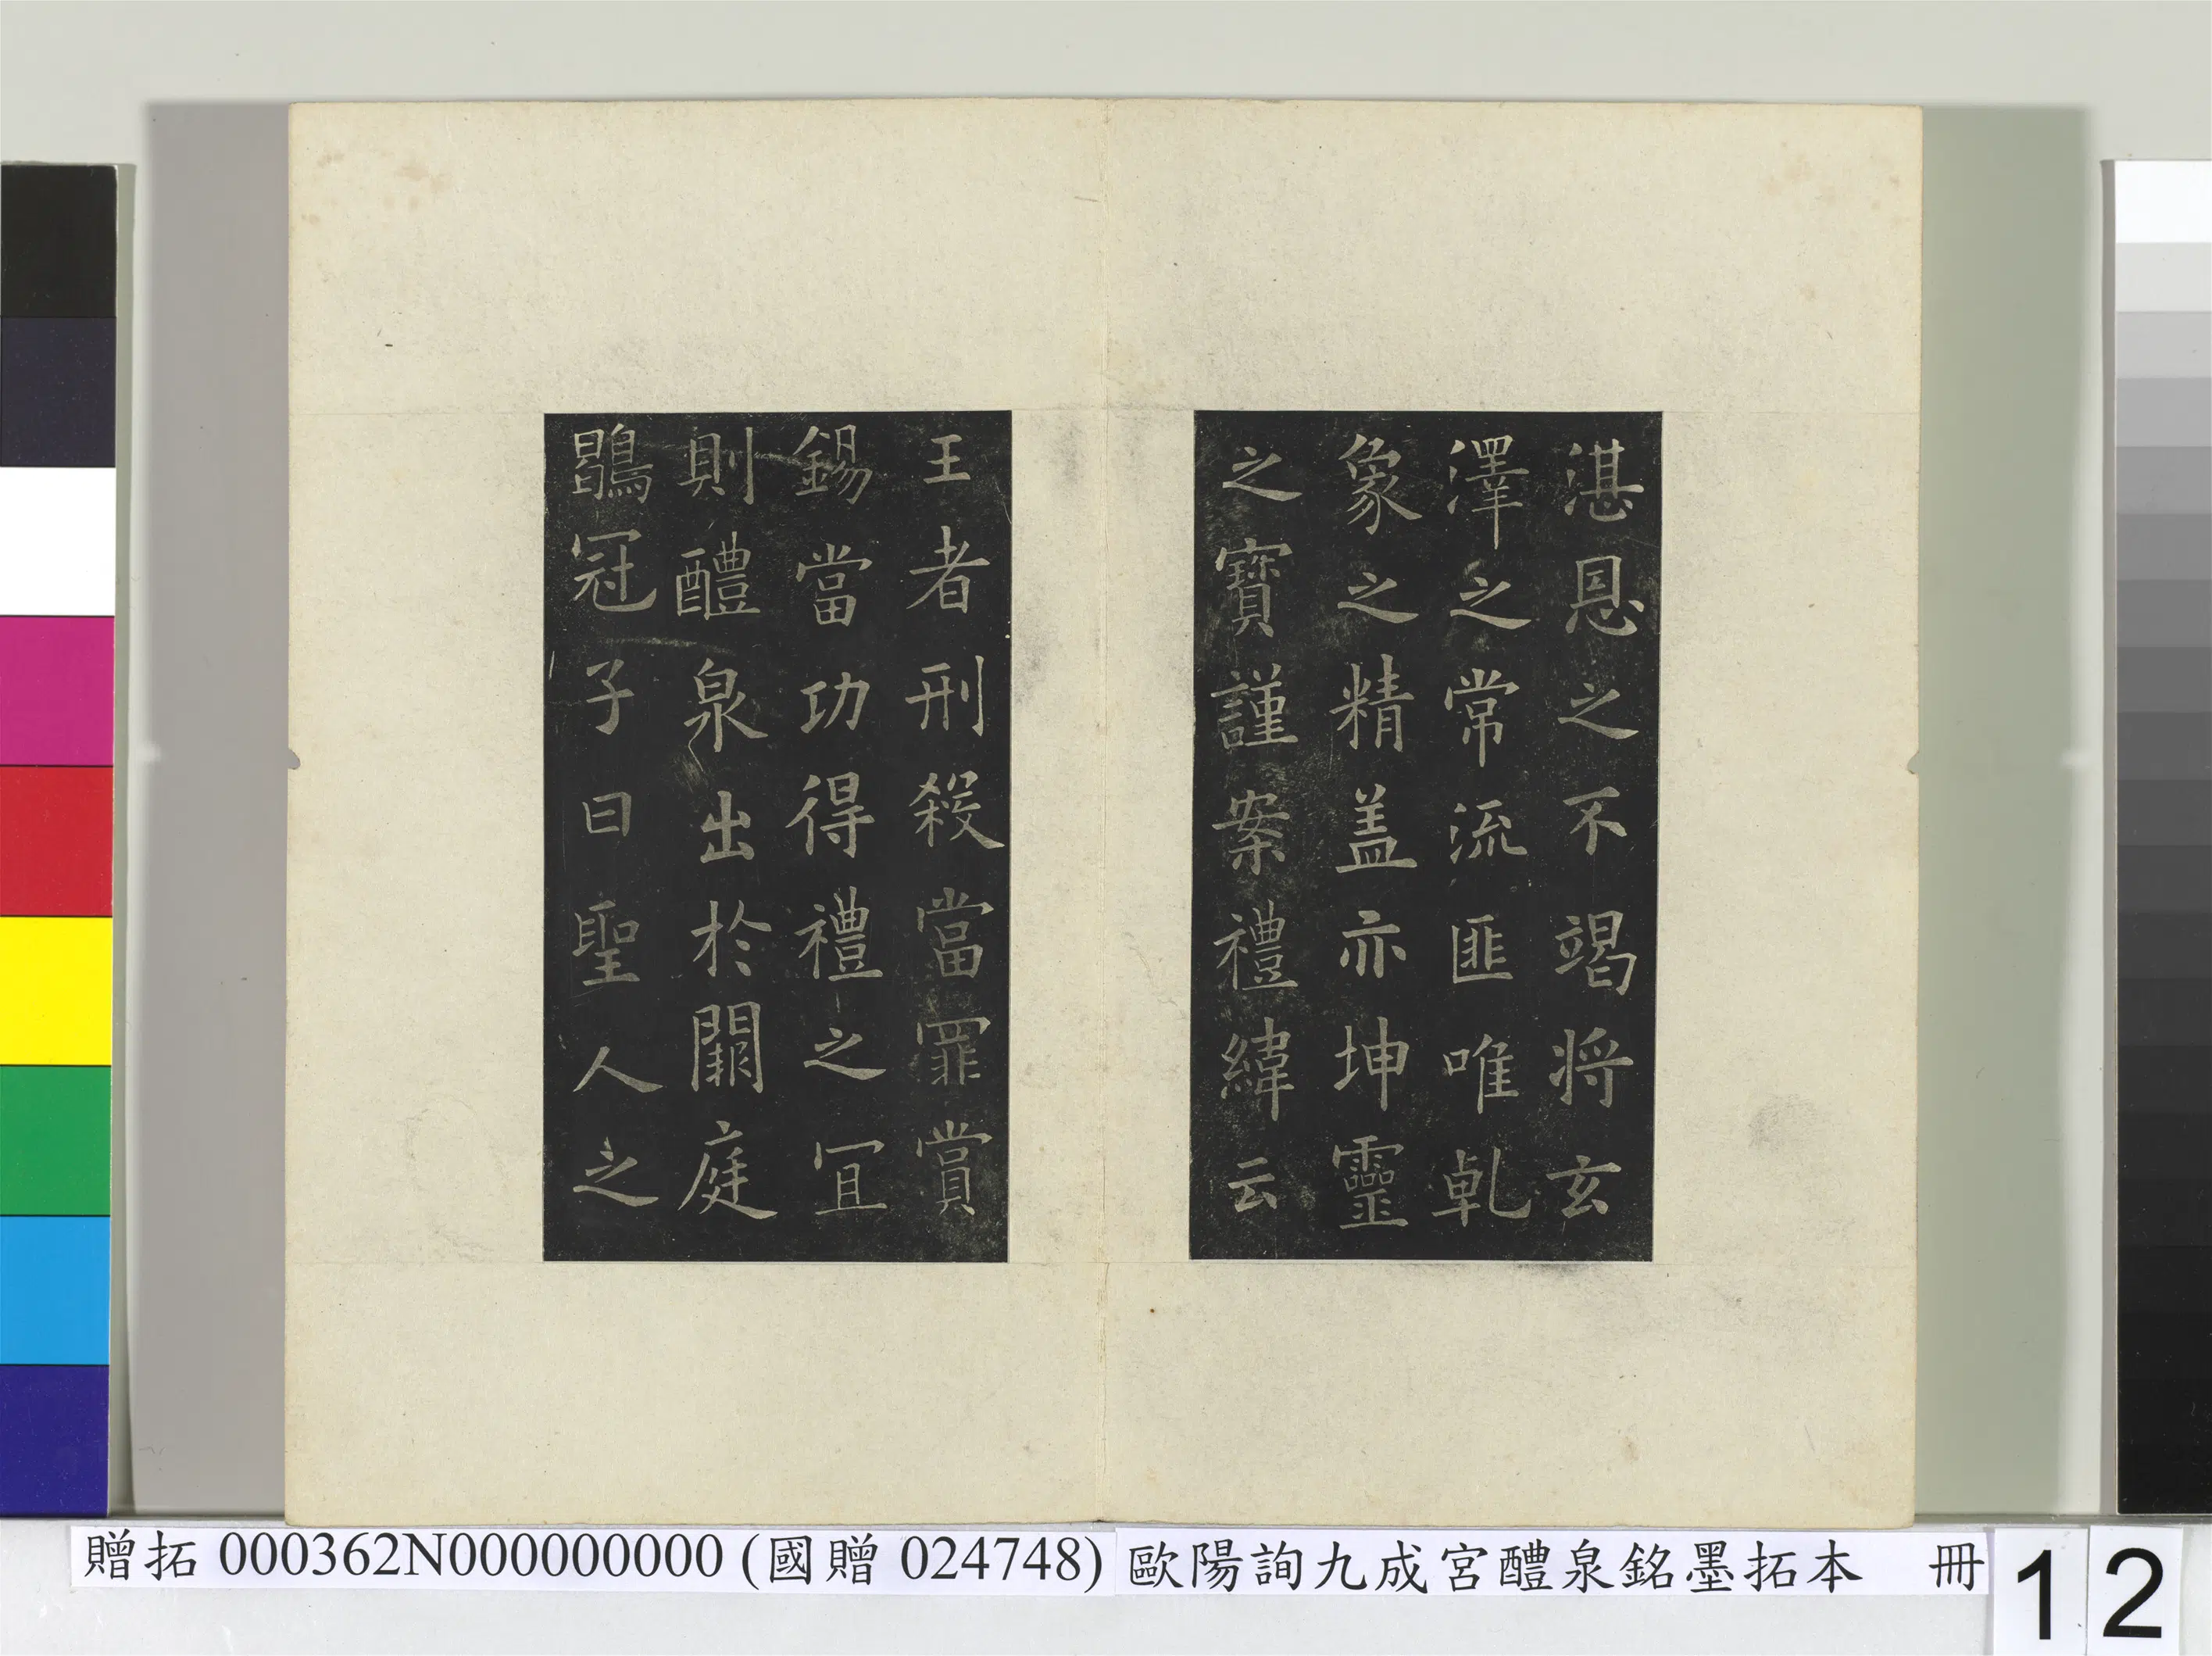 湛恩之不竭将玄
澤之常流匪唯乹
象之精盖亦坤靈
之寳謹案禮緯云
王者刑殺當罪賞
錫當功得禮之冝
則醴泉出於闕庭
鶡冠子曰聖人之
贈拓 000362N000000000 (國贈 024748) 歐陽詢九成宮醴泉銘墨拓本 冊 12